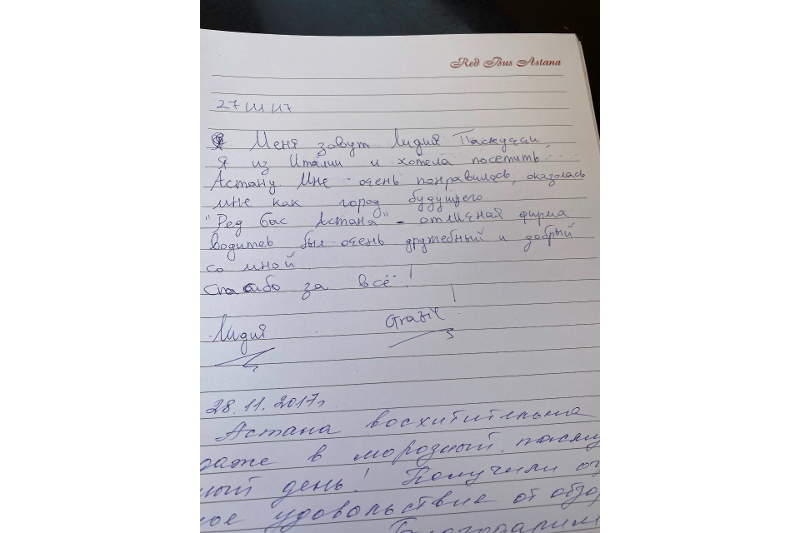 Red Bus Astana
27 III 17
Меня зовут Лидия Паскуцци,
я из Италии и хотела посетить
Астану. Мне очень понравилось, оказалась
мне как город будущего.
"Ред Бас Астана" - отличная фирма
водитев был очень дружебный и добрый
со мной.
спасибо за всё!
Лидия Grazie!
28.11.2017г
Астана восхитительна
даже в морозный,
ный день! Получили
ное удовольствие от обзо
Благодарим